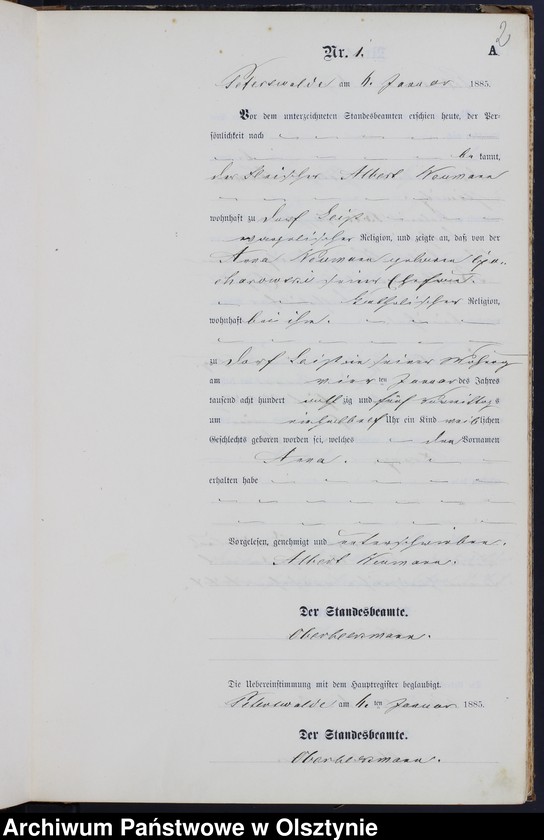 2
Nr. 1.
A
Peterswalde am 6. Januar 1885.
Vor dem unterzeichneten Standesbeamten erschien heute, der Per-
sönlichkeit nach
kannt,
der Fleischer Albert Neumann
wohnhaft zu Dorf
evangelischer Religion, und zeigte an, daß von der
Anna Neumann geborene
seiner Ehefrau
katholischer Religion,
wohnhaft bei ihm.
zu Dorf in seiner Wohnung
am vier ten Januar des Jahres
tausend acht hundert acht zig und fünf Vormittags
um Uhr ein Kind weiblichen
Geschlechts geboren worden sei, welches den Vornamen
Anna.
erhalten habe
Vorgelesen, genehmigt und unterschrieben.
Albert Neumann.
Der Standesbeamte.
Die Uebereinstimmung mit dem Hauptregister beglaubigt.
Peterswalde am 6. ten Januar 1885.
Der Standesbeamte.
Archiwum Państwowe w Olsztynie